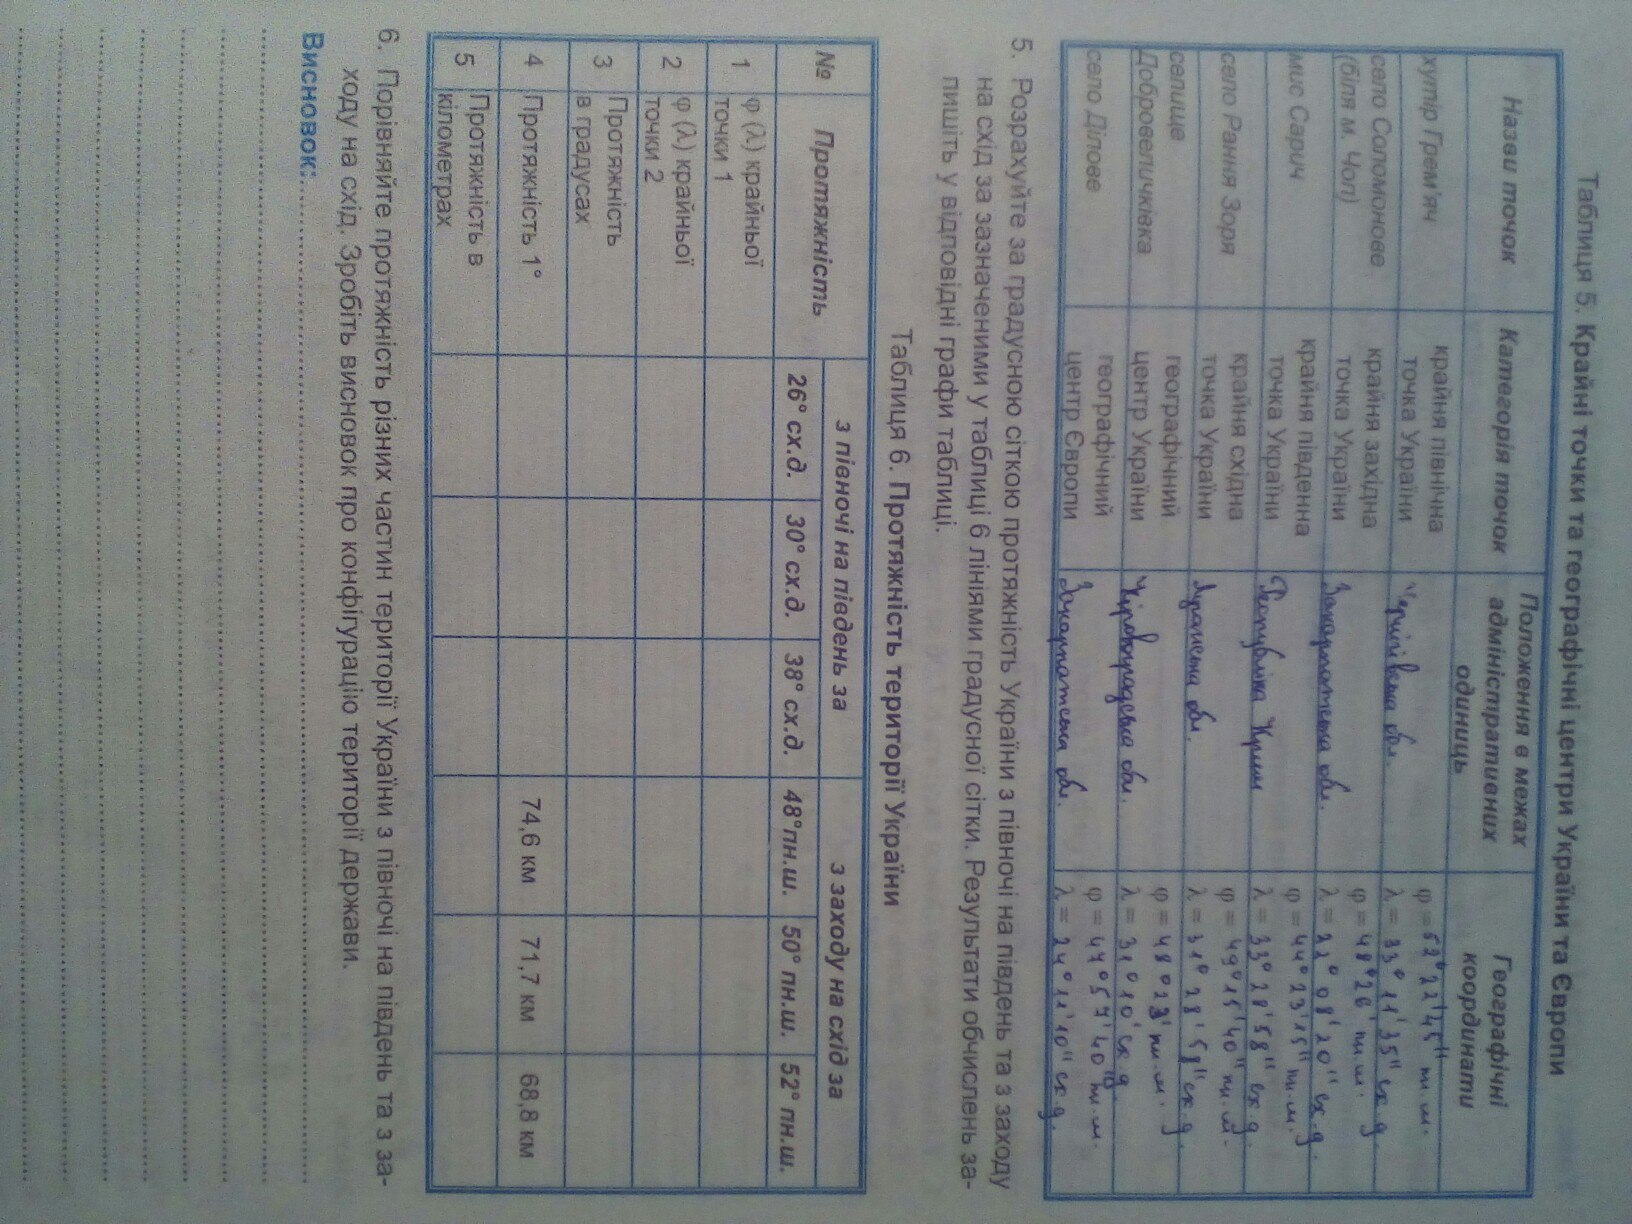 Таблиця 5. Крайні точки та географічні центри України та Європи
Назви точок
Категорія точок
Положення в межах адміністративних одиниць
Географічні координати
хутір Грем'яч
крайня північна точка України
Чернігівська обл.
φ = 52° 22' 45" пн.ш.
λ = 33° 11' 35" сх.д
село Соломонове (біля м. Чоп)
крайня західна точка України
Закарпатська обл.
φ = 48° 26' пн.ш.
λ = 22° 08' 20" сх.д.
мис Сарич
крайня південна точка України
Республіка Крим
φ = 44° 23' 15" пн.ш.
λ = 33° 28' 58" сх.д.
село Рання Зоря
крайня східна точка України
Луганська обл.
φ = 49° 15' 40" пн.ш.
λ = 31° 28' 58" сх.д.
селище Добровеличківка
географічний центр України
Кіровоградська обл.
φ = 48° 23' пн.ш.
λ = 31° 10' сх.д.
село Ділове
географічний центр Європи
Закарпатська обл.
φ = 44° 57' 40" пн.ш.
λ = 24° 11' 10" сх.д.
5. Розрахуйте за градусною сіткою протяжність України з півночі на південь та з заходу
на схід за зазначеними у таблиці 6 лініями градусної сітки. Результати обчислень за-
пишіть у відповідні графи таблиці.
Таблиця 6. Протяжність території України
№
Протяжність
з півночі на південь за
з заходу на схід за
26° сх.д.
30° сх.д.
38° сх.д.
48°пн.ш.
50° пн.ш.
52° пн.ш.
1
φ (λ) крайньої
точки 1
2
φ (λ) крайньої
точки 2
3
Протяжність
в градусах
4
Протяжність 1°
74,6 км
71,7 км
68,8 км
5
Протяжність в
кілометрах
6. Порівняйте протяжність різних частин території України з півночі на південь та з за-
ходу на схід. Зробіть висновок про конфігурацію території держави.
Висновок: